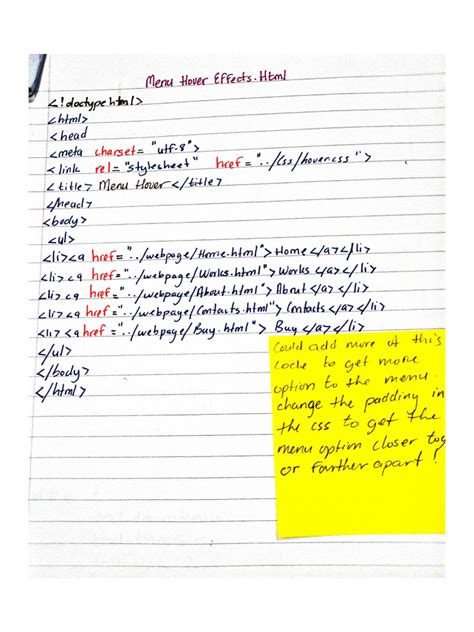 Menu Hover Effects.Html
<!doctype html>
<html>
<head
<meta charset= "utf-8">
<link rel= "stylesheet" href= "../Css/hover.css">
<title> Menu Hover </title>
</head>
<body>
<ul>
<li><a href= "../webpage/Home.html"> Home </a></li>
<li><a href= "../webpage/Works.html"> Works </a></li>
<li><a href= "../webpage/About.html"> About </a></li>
<li><a href= "../webpage/Contacts.html"> Contacts </a></li>
<li><a href= "../webpage/Buy.html"> Buy </a></li>
</ul>
</body>
</html>
Could add more of this
Code to get more
option to the menu.
change the padding in
the css to get the
menu option closer tog
or farther apart!